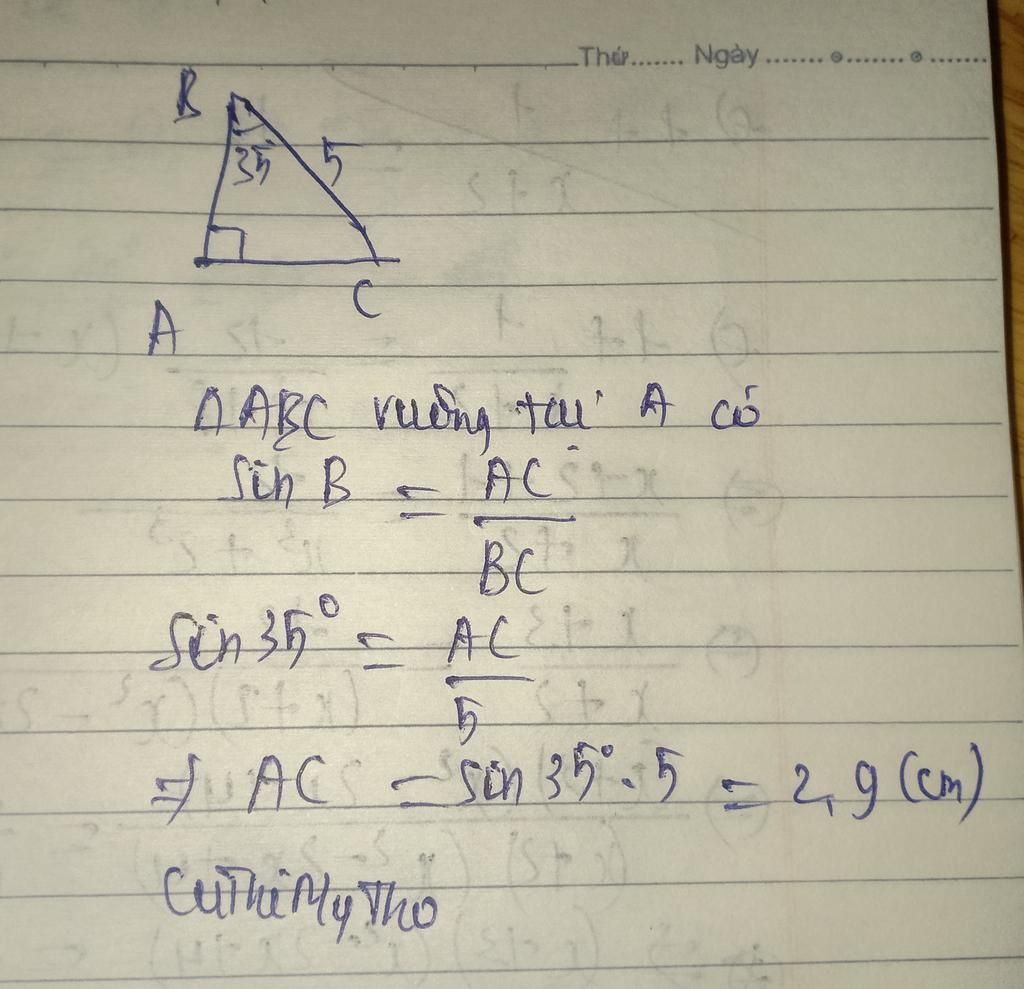 Thứ....... Ngày
B
35
5
C
A
ΔABC vuông tại A có
Sin B = AC/BC
Sin 35° = AC/5
=> AC = Sin 35° . 5 = 2,9 (cm)
CuThiMyTho